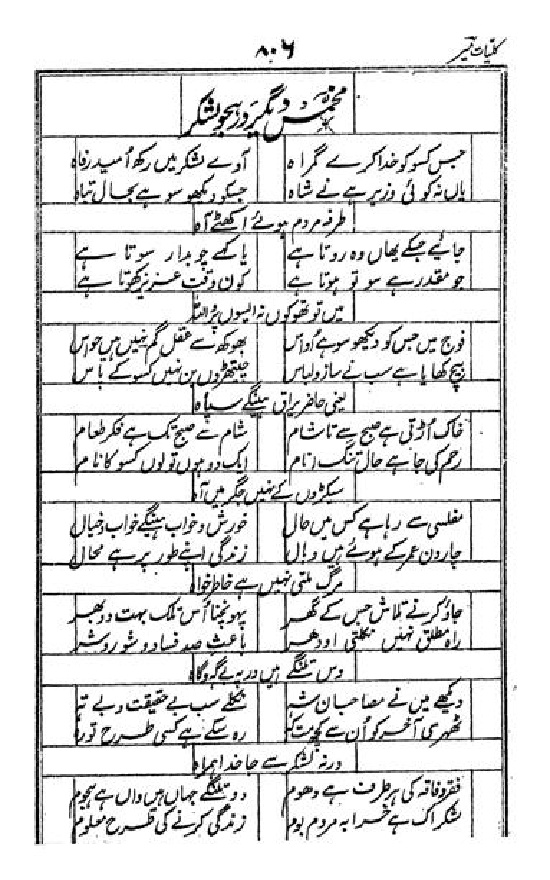 کلیات میر
۸۰۶
مخمس دیگر در ہجو لشکر
جس کسو کو خدا کرے گمراہ آوے لشکر میں رکھ اُمید رفاہ
یاں نہ کوئی وزیر ہے نے شاہ جسکو دیکھو سو ہے بحال تباہ
طرفہ مردم ہوئے اکھٹے آہ
جائے جسکے یہاں وہ روتا ہے یا کہے چوبدار سوتا ہے
جو مقدر ہے سو تو ہوتا ہے کون وقت عزیز کھوتا ہے
میں تو تھوکوں نہ ایسوں پر واللہ
فوج میں جس کو دیکھو سو ہے اُداس بھوکھ سے عقل گم نہیں ہیں حواس
بیچ کھایا ہے سب نے ساز و لباس چیتھڑوں بن نہیں کسو کے پاس
یعنی حاضر یراق ہینگے سپاہ
خاک اُڑتی ہے صبح سے تا شام شام سے صبح تک ہے فکر طعام
رحم کی جا ہے حال تنگ انام ایک دو ہوں تو لوں کسو کا نام
سیکڑوں کے نہیں جگر میں آہ
مفلسی سے رہا ہے کس میں حال خورش و خواب ہینگے خواب و خیال
چار دن عمر کے ہوئے ہیں وبال زندگی اپنے طور پر ہے محال
مرگ ملتی نہیں ہے خاطر خواہ
جاؤ کرنے تلاش جس کے گھر پہونچنا اُس تلک بہت دوبھر
راہ مطلق نہیں نکلتی اودھر باعث صد فساد و شور و شر
دس تلنگے ہیں در پہ بے گہ و گاہ
دیکھے میں نے مصاحبان شہ نکلے سب بے حقیقت و بے تہ
ٹھہری آخر کو اُن سے کچھ مت کہہ رہ سکے ہے کسی طرح تو رہ
ورنہ لشکر سے جا خدا ہمراہ
فقر و فاقہ کی ہر طرف ہے دھوم دو تلنگے جہاں ہیں واں ہے ہجوم
لشکر اک ہے خرابہ مردم بوم زندگی کرنے کی طرح معلوم